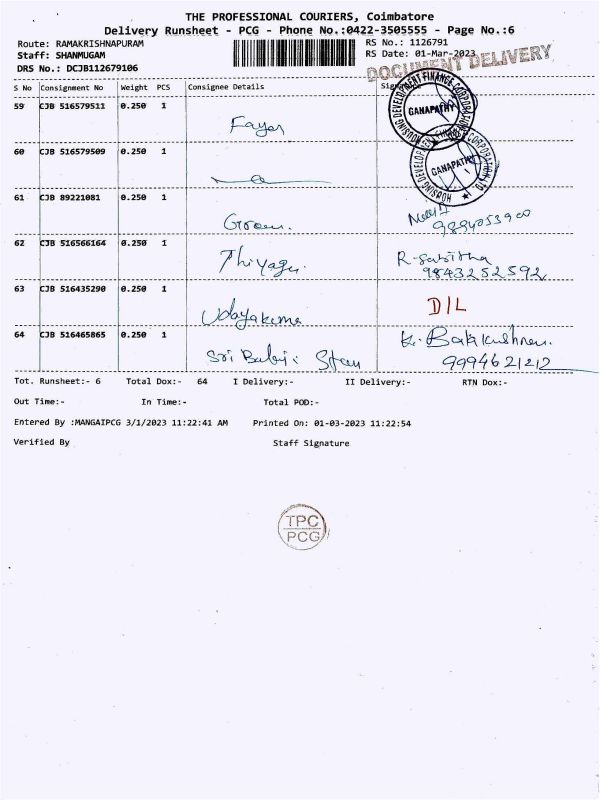 THE PROFESSIONAL COURIERS, Coimbatore
Delivery Runsheet - PCG - Phone No.:0422-3505555 - Page No.:6
Route: RAMAKRISHNAPURAM RS No.: 1126791
Staff: SHANMUGAM RS Date: 01-Mar-2023
DRS No.: DCJB112679106
DOCUMENT DELIVERY
S No Consignment No Weight PCS Consignee Details
59 CJB 516579511 0.250 1
HOUSING DEVELOPMENT FINANCE CORPORATION
GANAPATHY
60 CJB 516579509 0.250 1
HOUSING DEVELOPMENT FINANCE CORPORATION LTD
GANAPATHY
61 CJB 89221081 0.250 1
9894053900
62 CJB 516566164 0.250 1
Thiyagu R-Sabitha
9843252592
63 CJB 516435290 0.250 1
Udayakuma D/L
64 CJB 516465865 0.250 1
Sri Balaji K. Balakrishnan
9994621212
Tot. Runsheet:- 6 Total Dox:- 64 I Delivery:- II Delivery:- RTN Dox:-
Out Time:- In Time:- Total POD:-
Entered By :MANGAIPCG 3/1/2023 11:22:41 AM Printed On: 01-03-2023 11:22:54
Verified By Staff Signature
TPC
PCG